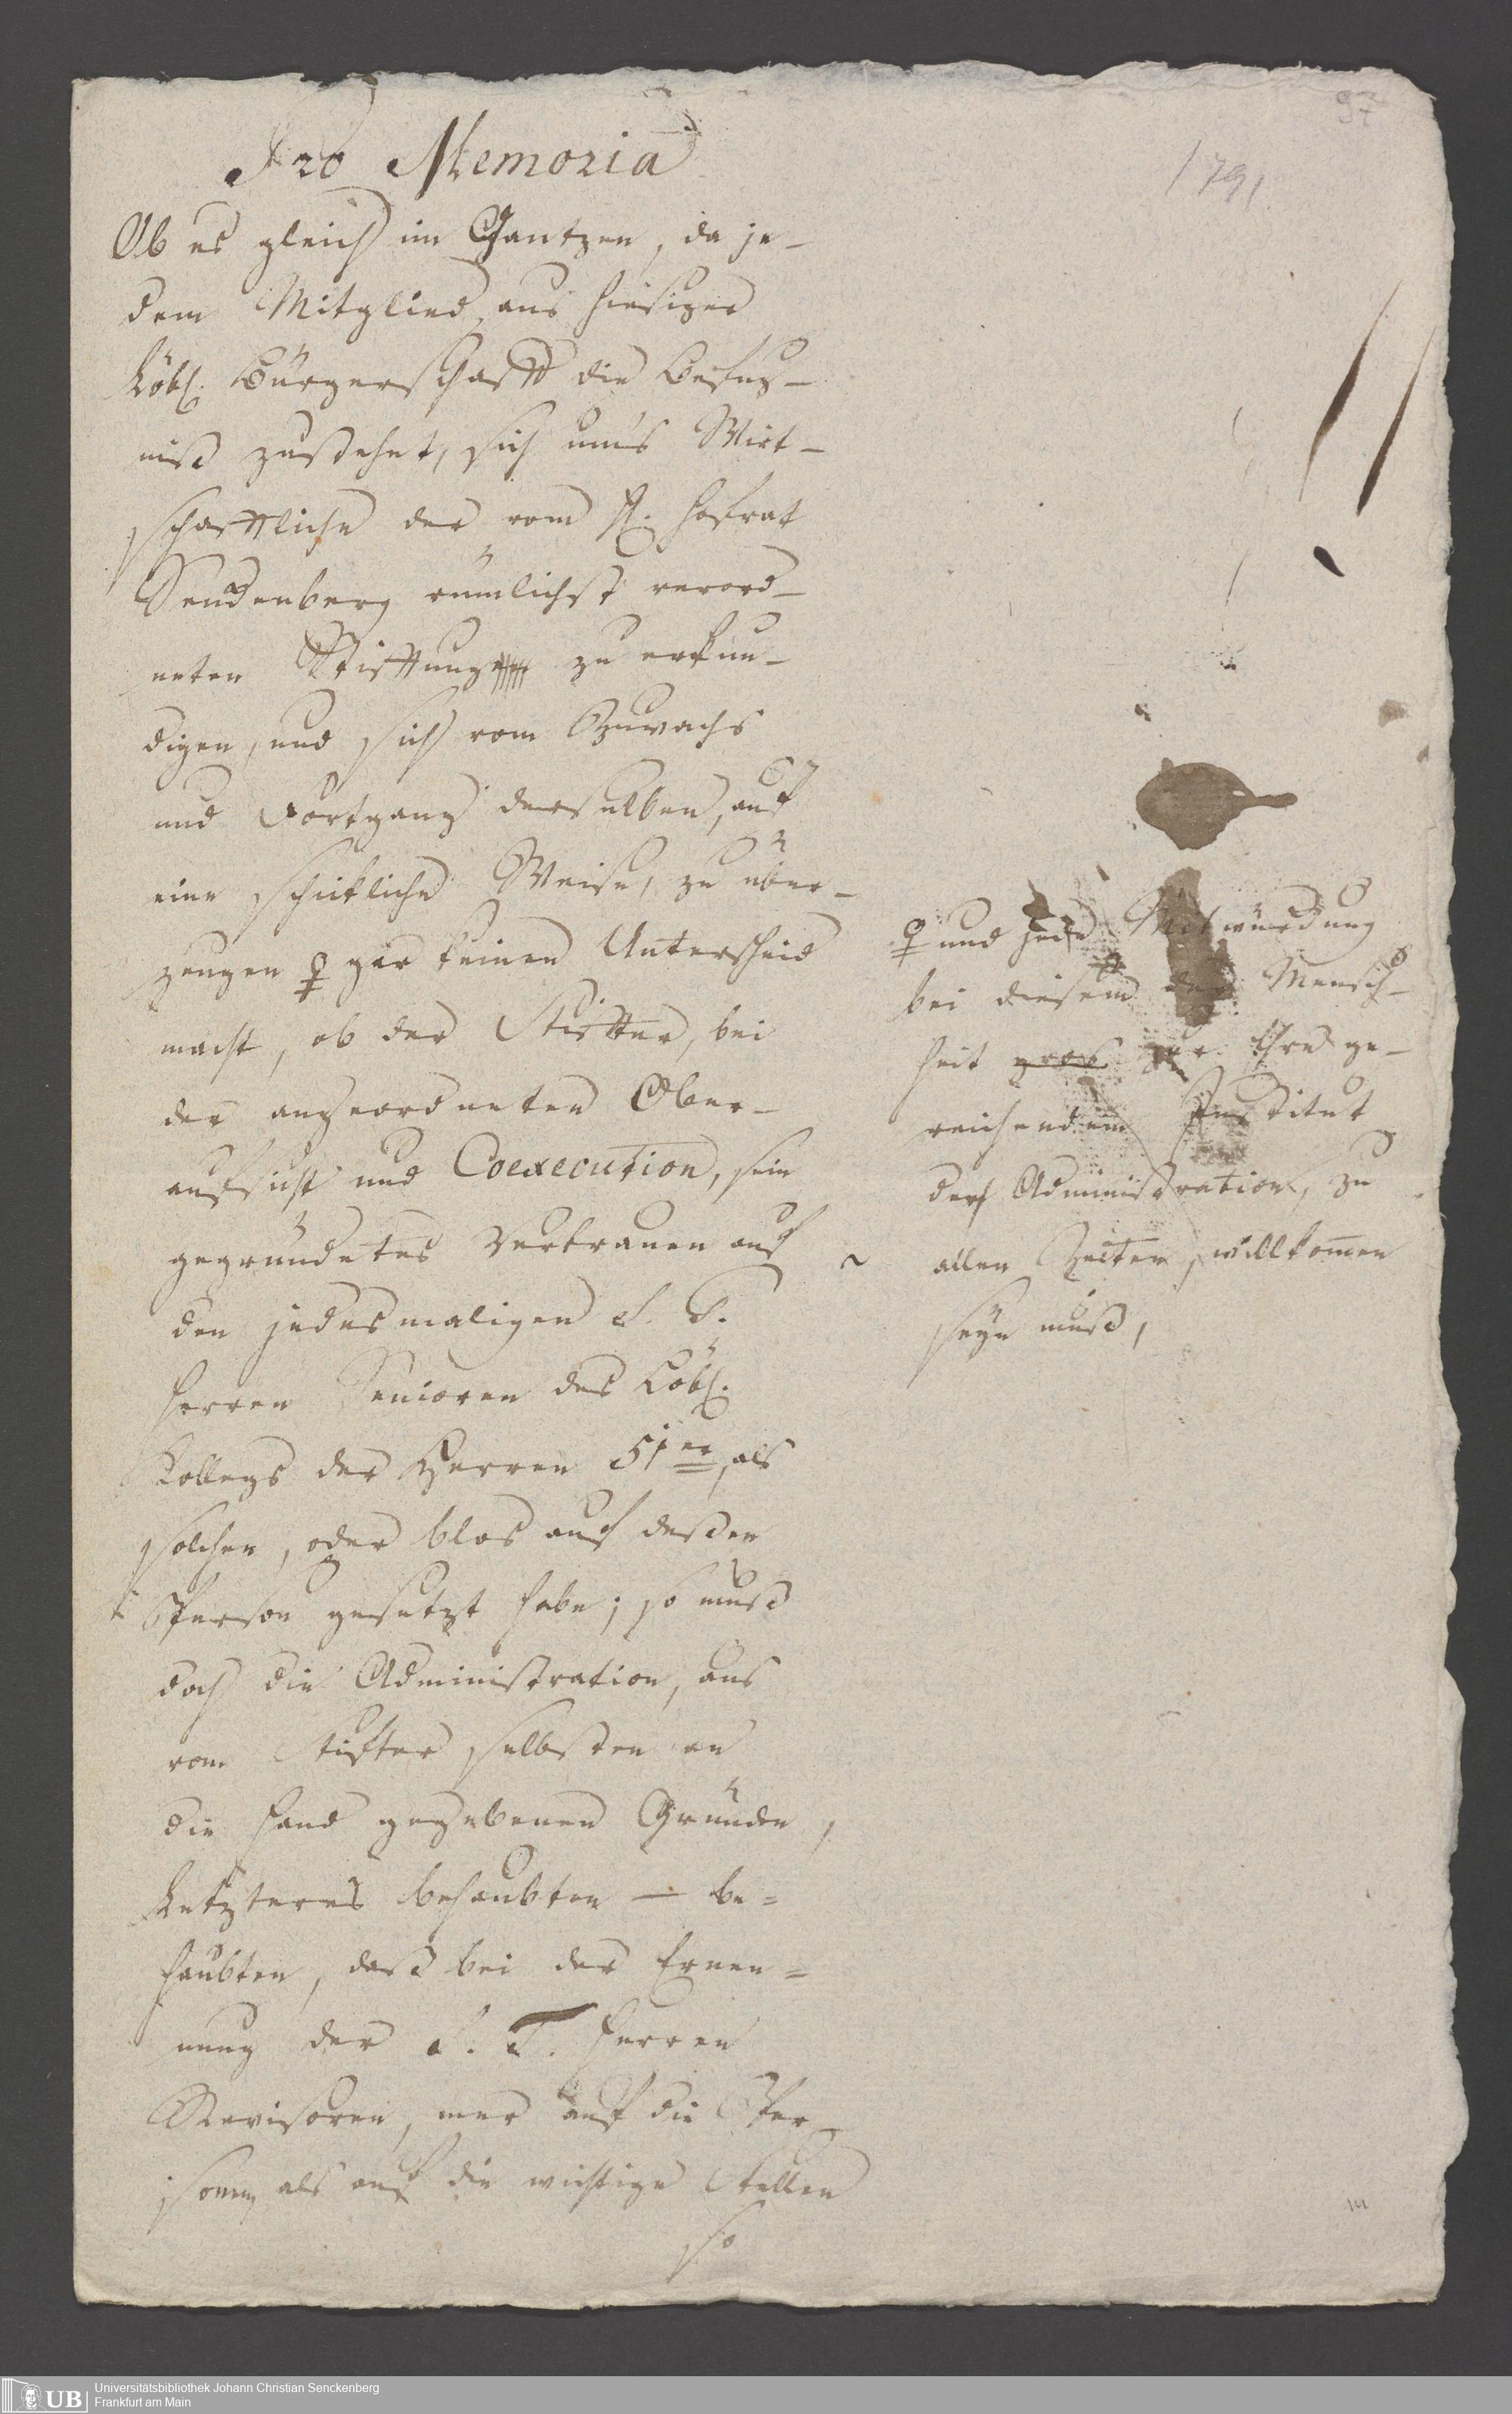 97
1791
Pro Memoria
Ob es gleich im Gantzen, da je-
dem Mitglied aus hiesiger
Löbl. Bürgerschafft die Befug-
niß zustehet, sich ums Wirt-
schafftliche der vom H. Hofrat
Senckenberg rümlichst verord-
neten Stifftung zu erkun-
digen, und sich vom Zuwachs
und Fortgang derselben, auf
eine schickliche Weise, zu über-
zeugen gar keinen Unterscheid
macht, ob der Stiffter, bei
der angeordneten Ober-
aufsicht und Coexecution, sein
gegründetes Vertrauen auf
den jedesmaligen S. T.
Herren Senioren des Löbl.
Kollegs der Herren 51er, als
solchen, oder blos auf deßen
Person gesetzt habe; so muß
doch die Administration, aus
vom Stifter selbsten an
die Hand gegebenen Gründen,
Letzteres behaubten — be=
haubten, daß bei der Ernen=
nung der S. T. Herren
Revisoren, mer auf die Per-
sonen als auf die wichtige Stellen
so
und jede Mitwürckung
bei diesem der Mensch-
heit gros zur Ehre ge-
reichendem Institut
der Administration, zu
allen Zeiten willkomen
seyn muß,
UB
Universitätsbibliothek Johann Christian Senckenberg
Frankfurt am Main